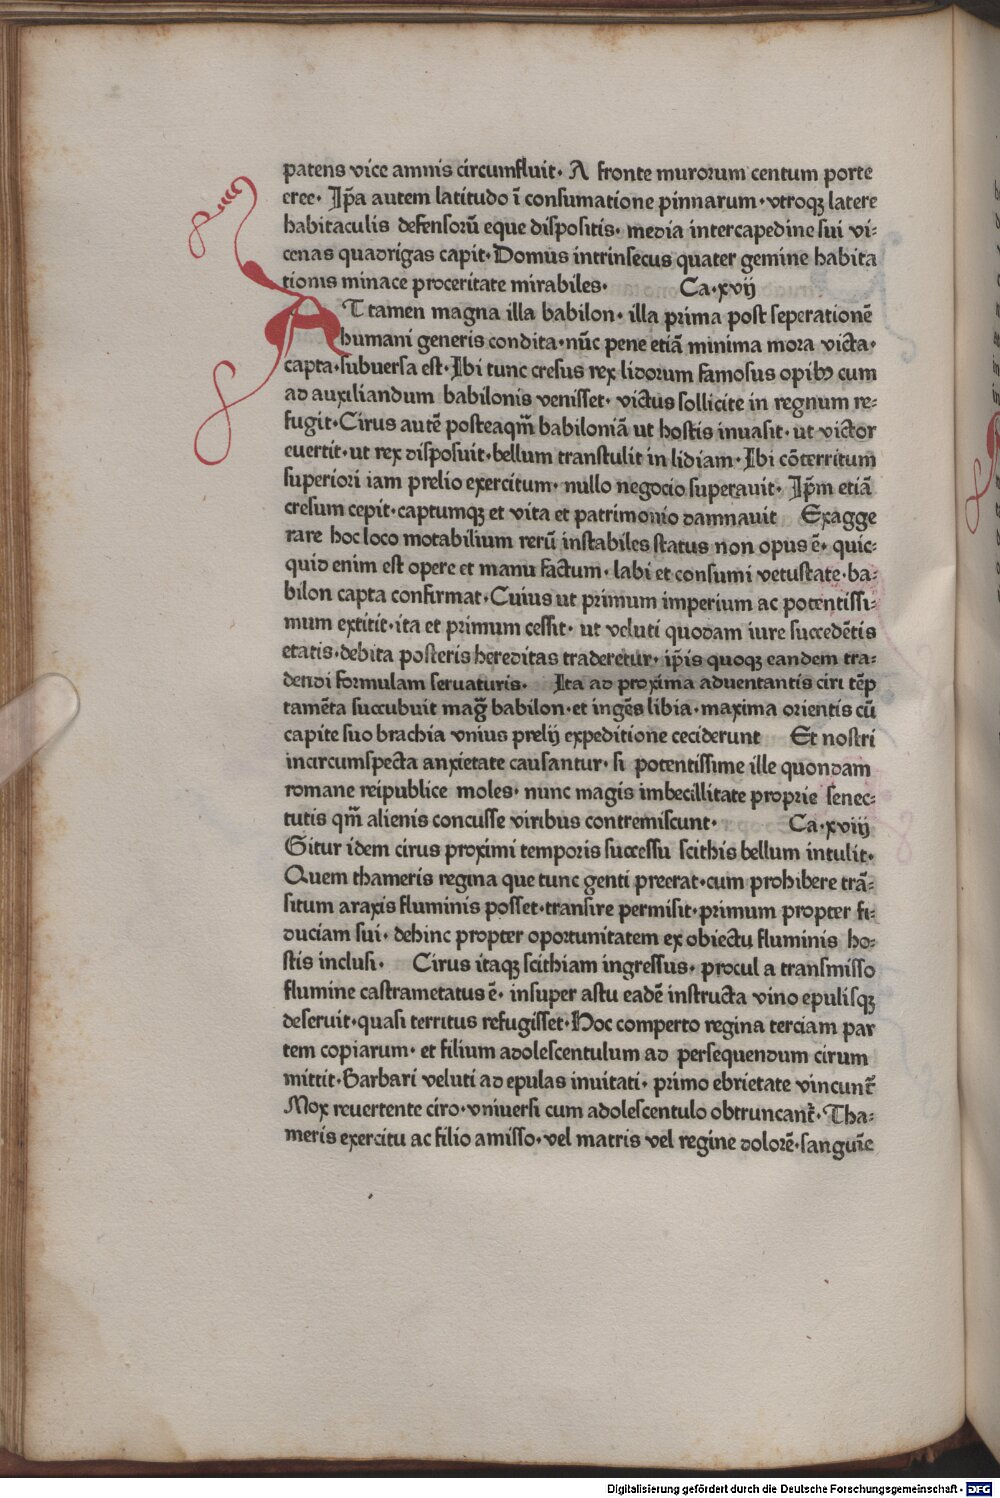 patens vice amnis circumfluit· A fronte murorum centum porte
eree· Ip̃a autem latitudo ī consumatione pinnarum·vtroqꝫ latere
habitaculis defensorū eque dispositis· media intercapedine sui vi⸗
cenas quadrigas capit·Domus intrinsecus quater gemine habita
tionis minace proceritate mirabiles· Ca·xvij
ATtamen magna illa babilon· illa prima post seperationē
humani generis condita·nūc pene etiā minima mora victa·
capta·subuersa est·Ibi tunc cresus rex lidorum famosus opibꝫ cum
ad auxiliandum babilonis venisset· victus sollicite in regnum re⸗
fugit·Cirus autē posteaqm̃ babiloniā ut hostis inuasit· ut victor
euertit·ut rex disposuit·bellum transtulit in lidiam·Ibi cōterritum
superiori iam prelio exercitum· nullo negocio superauit· Ip̃m etiā
cresum cepit·captumqꝫ et vita et patrimonio damnauit Exagge
rare hoc loco motabilium rerū instabiles status non opus ē· quic⸗
quid enim est opere et manu factum·labi et consumi vetustate·ba⸗
bilon capta confirmat·Cuius ut primum imperium ac potentissi⸗
mum extitit·ita et primum cessit· ut veluti quodam iure succedētis
etatis·debita posteris hereditas traderetur· ip̃is quoqꝫ eandem tra⸗
dendi formulam seruaturis· Ita ad proxima aduentantis ciri tēp
tamēta succubuit mag̃ babilon·et ingēs libia·maxima orientis cū
capite suo brachia vnius prelij expeditione ceciderunt Et nostri
incircumspecta anxietate causantur· si potentissime ille quondam
romane reipublice moles· nunc magis imbecillitate proprie senec⸗
tutis qm̃ alienis concusse viribus contremiscunt· Ca·xviij
Gitur idem cirus proximi temporis successu scithis bellum intulit·
Quem thameris regina que tunc genti preerat·cum prohibere trā⸗
situm araxis fluminis posset·transire permisit·primum propter fi⸗
duciam sui· dehinc propter oportunitatem ex obiectu fluminis ho⸗
stis inclusi· Cirus itaqꝫ scithiam ingressus· procul a transmisso
flumine castrametatus ē· insuper astu eadē instructa vino epulisqꝫ
deseruit·quasi territus refugisset·Hoc comperto regina terciam par
tem copiarum· et filium adolescentulum ad persequendum cirum
mittit·Barbari veluti ad epulas inuitati· primo ebrietate vincunt̃
Mox reuertente ciro·vniuersi cum adolescentulo obtruncant̃·Tha⸗
meris exercitu ac filio amisso·vel matris vel regine dolorē·sanguīe
Digitalisierung gefördert durch die Deutsche Forschungsgemeinschaft - DFG